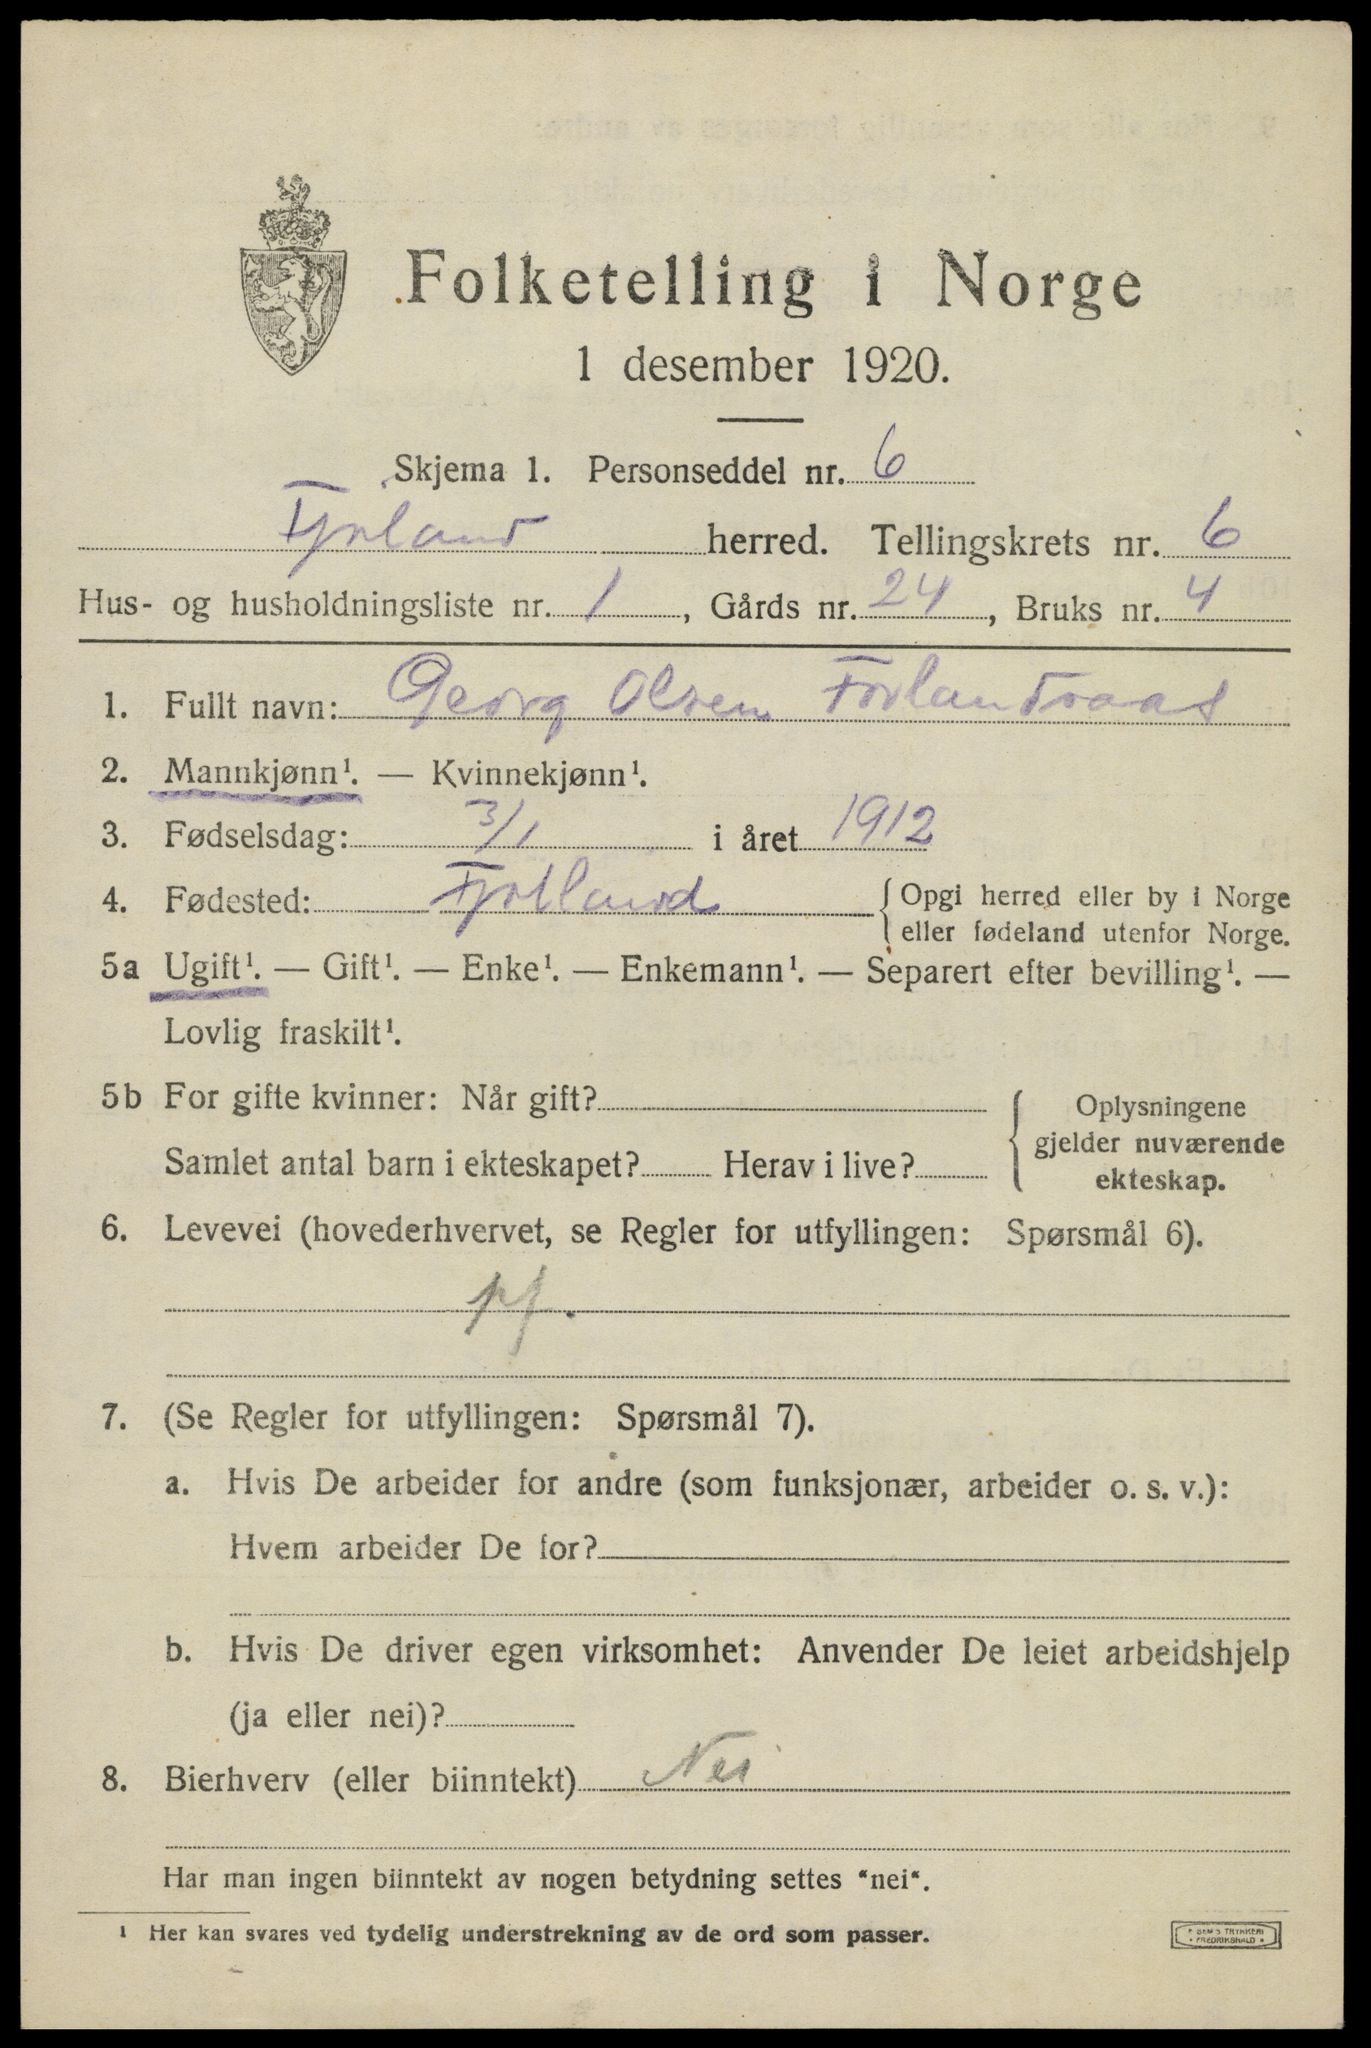 Folketelling i Norge
1 desember 1920.
Skjema 1. Personseddel nr. 6
Fjotland herred. Tellingskrets nr. 6
Hus- og husholdningsliste nr. 1, Gårds nr. 24, Bruks nr. 4
1. Fullt navn: Georg Olsen
2. Mannkjønn¹. — Kvinnekjønn¹.
3. Fødselsdag: 3/1 i året 1912
4. Fødested: Fjotland { Opgi herred eller by i Norge
eller fødeland utenfor Norge.
5a Ugift¹. — Gift¹. — Enke¹. — Enkemann¹. — Separert efter bevilling¹. —
Lovlig fraskilt¹.
5b For gifte kvinner: Når gift?
Samlet antal barn i ekteskapet? Herav i live?
{ Oplysningene
gjelder nuværende
ekteskap.
6. Levevei (hovederhvervet, se Regler for utfyllingen: Spørsmål 6).
pf.
7. (Se Regler for utfyllingen: Spørsmål 7).
a. Hvis De arbeider for andre (som funksjonær, arbeider o. s. v.):
Hvem arbeider De for?
b. Hvis De driver egen virksomhet: Anvender De leiet arbeidshjelp
(ja eller nei)?
8. Bierhverv (eller biinntekt) Nei
Har man ingen biinntekt av nogen betydning settes "nei".
¹ Her kan svares ved tydelig understrekning av de ord som passer.
TRYKKERI
FREDRIKSHALD